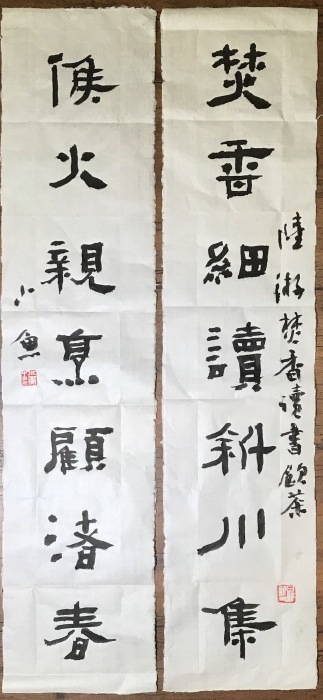 陸游焚香讀書飲茶
焚香細讀斜川集
候火親烹顧渚春
小魚